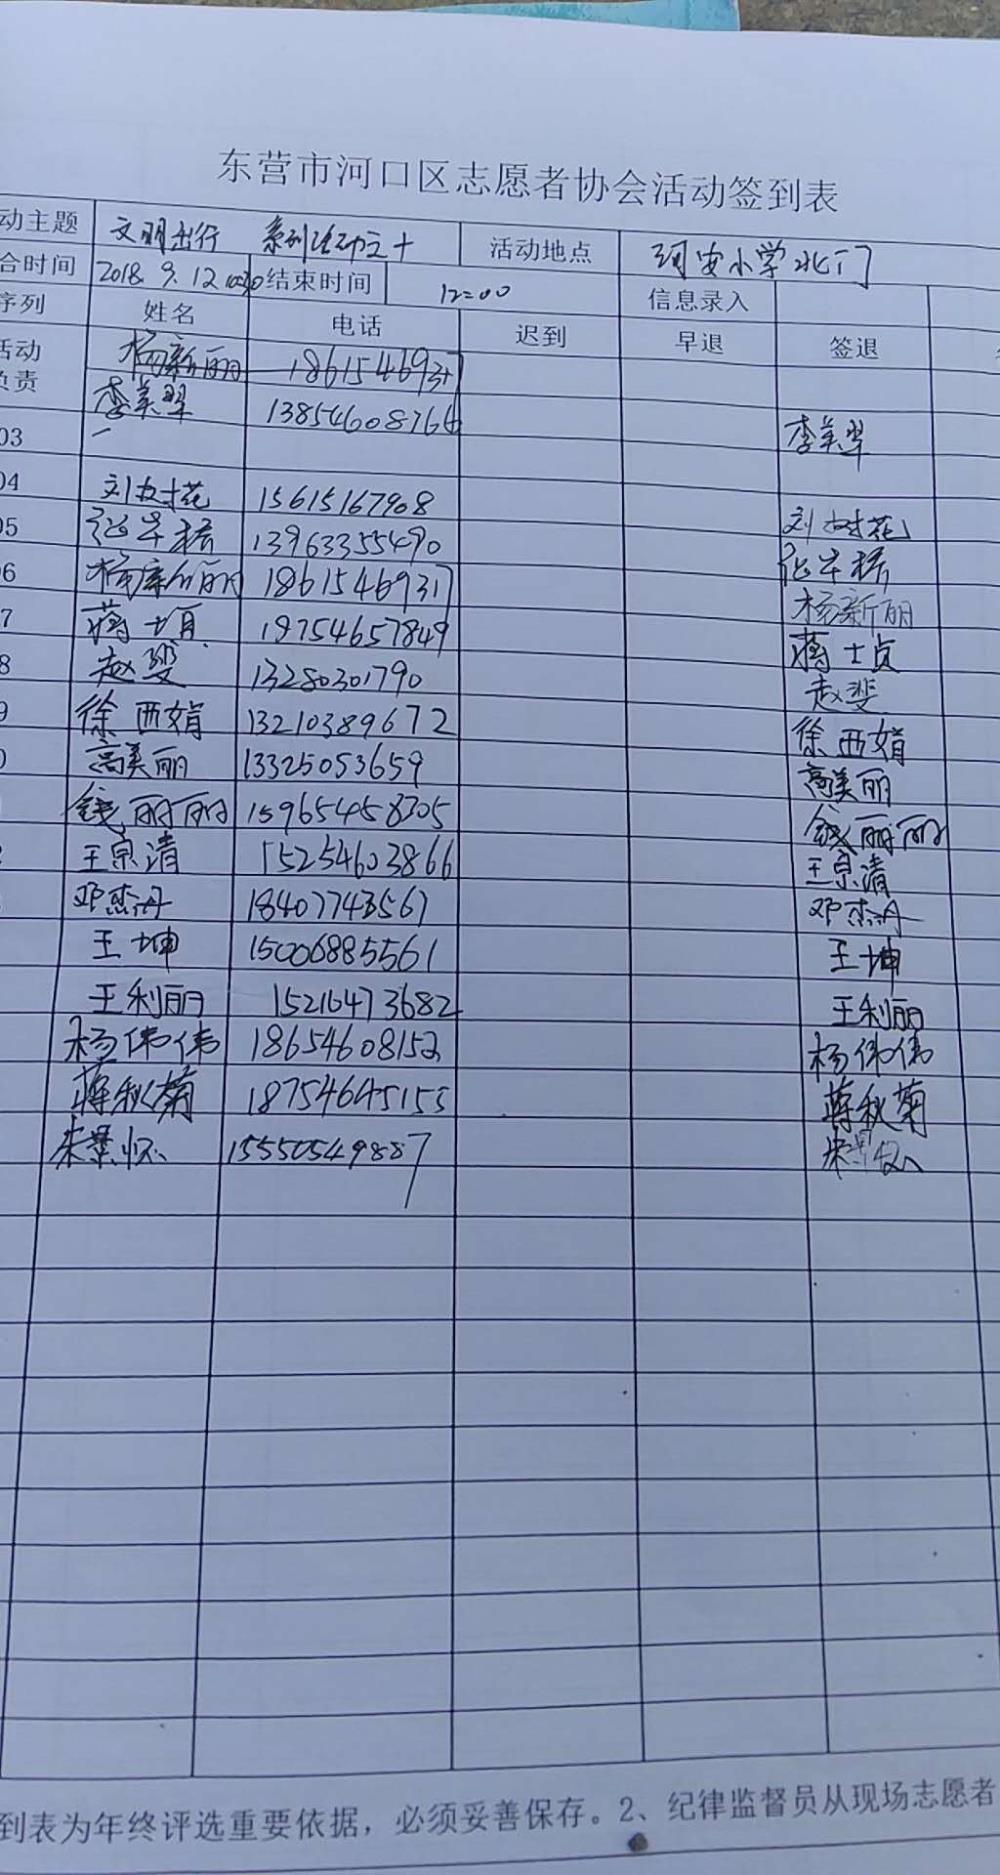 东营市河口区志愿者协会活动签到表
动主题 文明出行 系列活动之十 活动地点 河安小学北门
合时间 2018.9.12 结束时间 12=00 信息录入
序列 姓名 电话 迟到 早退 签退
活动 杨新丽
负责 李美翠 13854608764 李美翠
03
04 刘树花 15615167908 刘树花
05 13963355490
06 杨新丽 18615469317 杨新丽
7 蒋士贞 18754657849 蒋士贞
8 赵斐 13280301790 赵斐
9 徐西娟 13210389672 徐西娟
0 高美丽 13325053659 高美丽
钱丽丽 15965458305 钱丽丽
王宗清 15254603866 王宗清
邓杰丹 18407743567 邓杰丹
王坤 15006885561 王坤
王利丽 15216473682 王利丽
杨伟伟 18654608152 杨伟伟
蒋秋菊 18754645155 蒋秋菊
15550549887
到表为年终评选重要依据，必须妥善保存。2、纪律监督员从现场志愿者